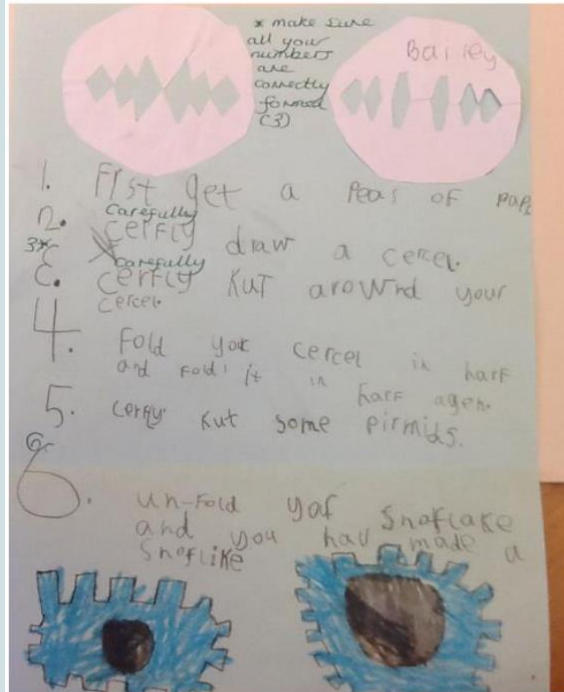 * make sure
all your
numbers
are
correctly
formed
(3)
Bailey
1. First get a Peas of pap
Carefully
2. cerfly draw a cercel.
3* Carefully
3. cerfly kut arownd your
cercel.
4. Fold your cercel in harf
and fold it in harf agen.
5. cerfly kut some pirmids.
6
6. un-fold yor snoflake
and you hav made a
snoflike